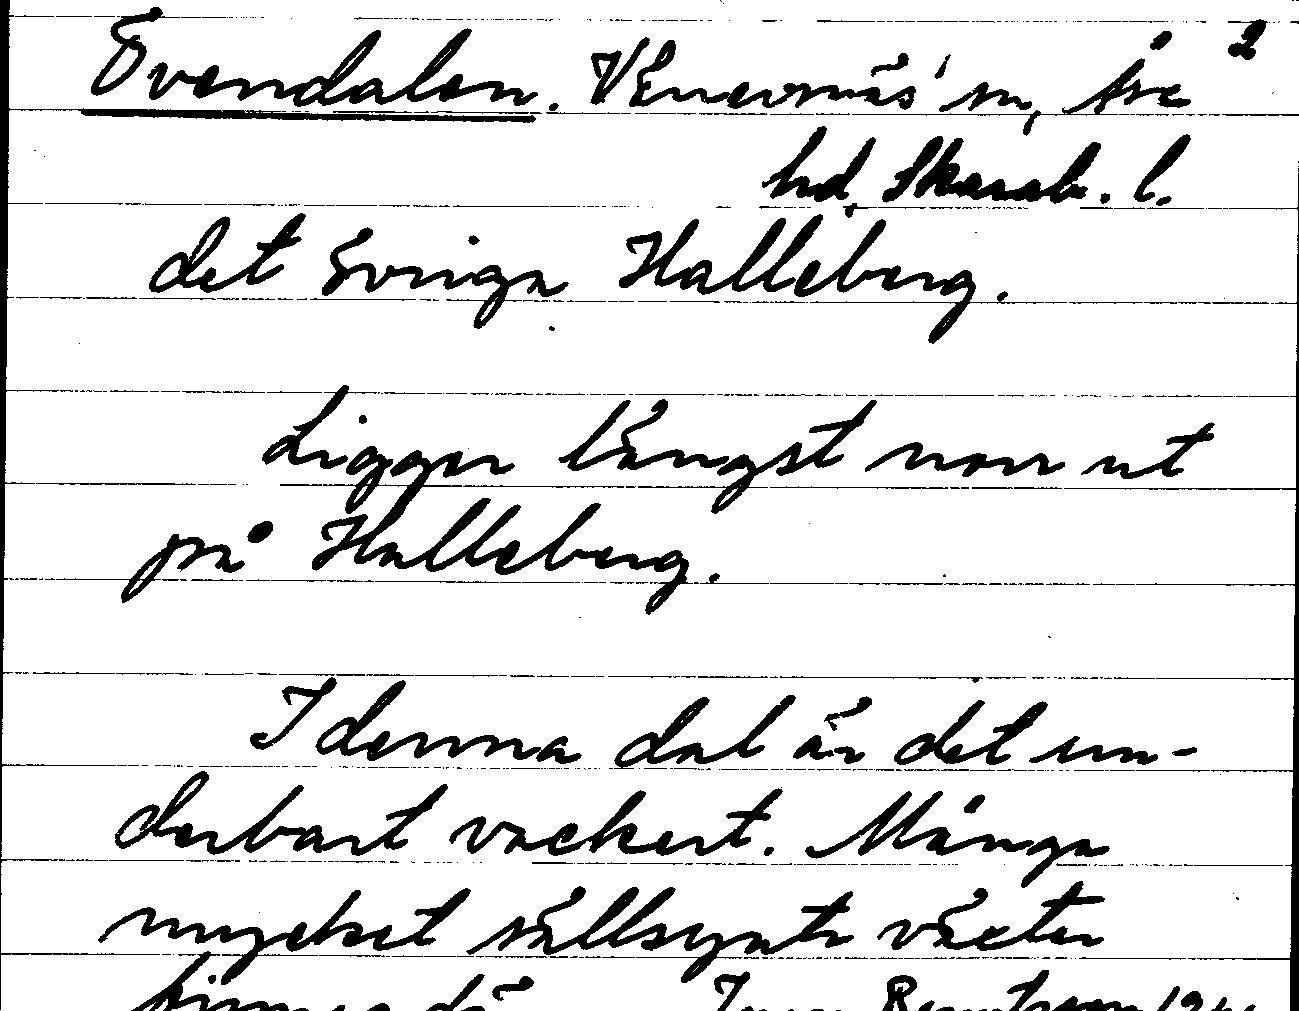 Ovendalen. Vänersnäs' sn, Åse 2
hd, Skarab. l.
det övriga Halleberg.
Ligger längst norr ut
på Halleberg.
I denna dal är det un-
derbart vackert. Många
mycket sällsynta växter
finnes då